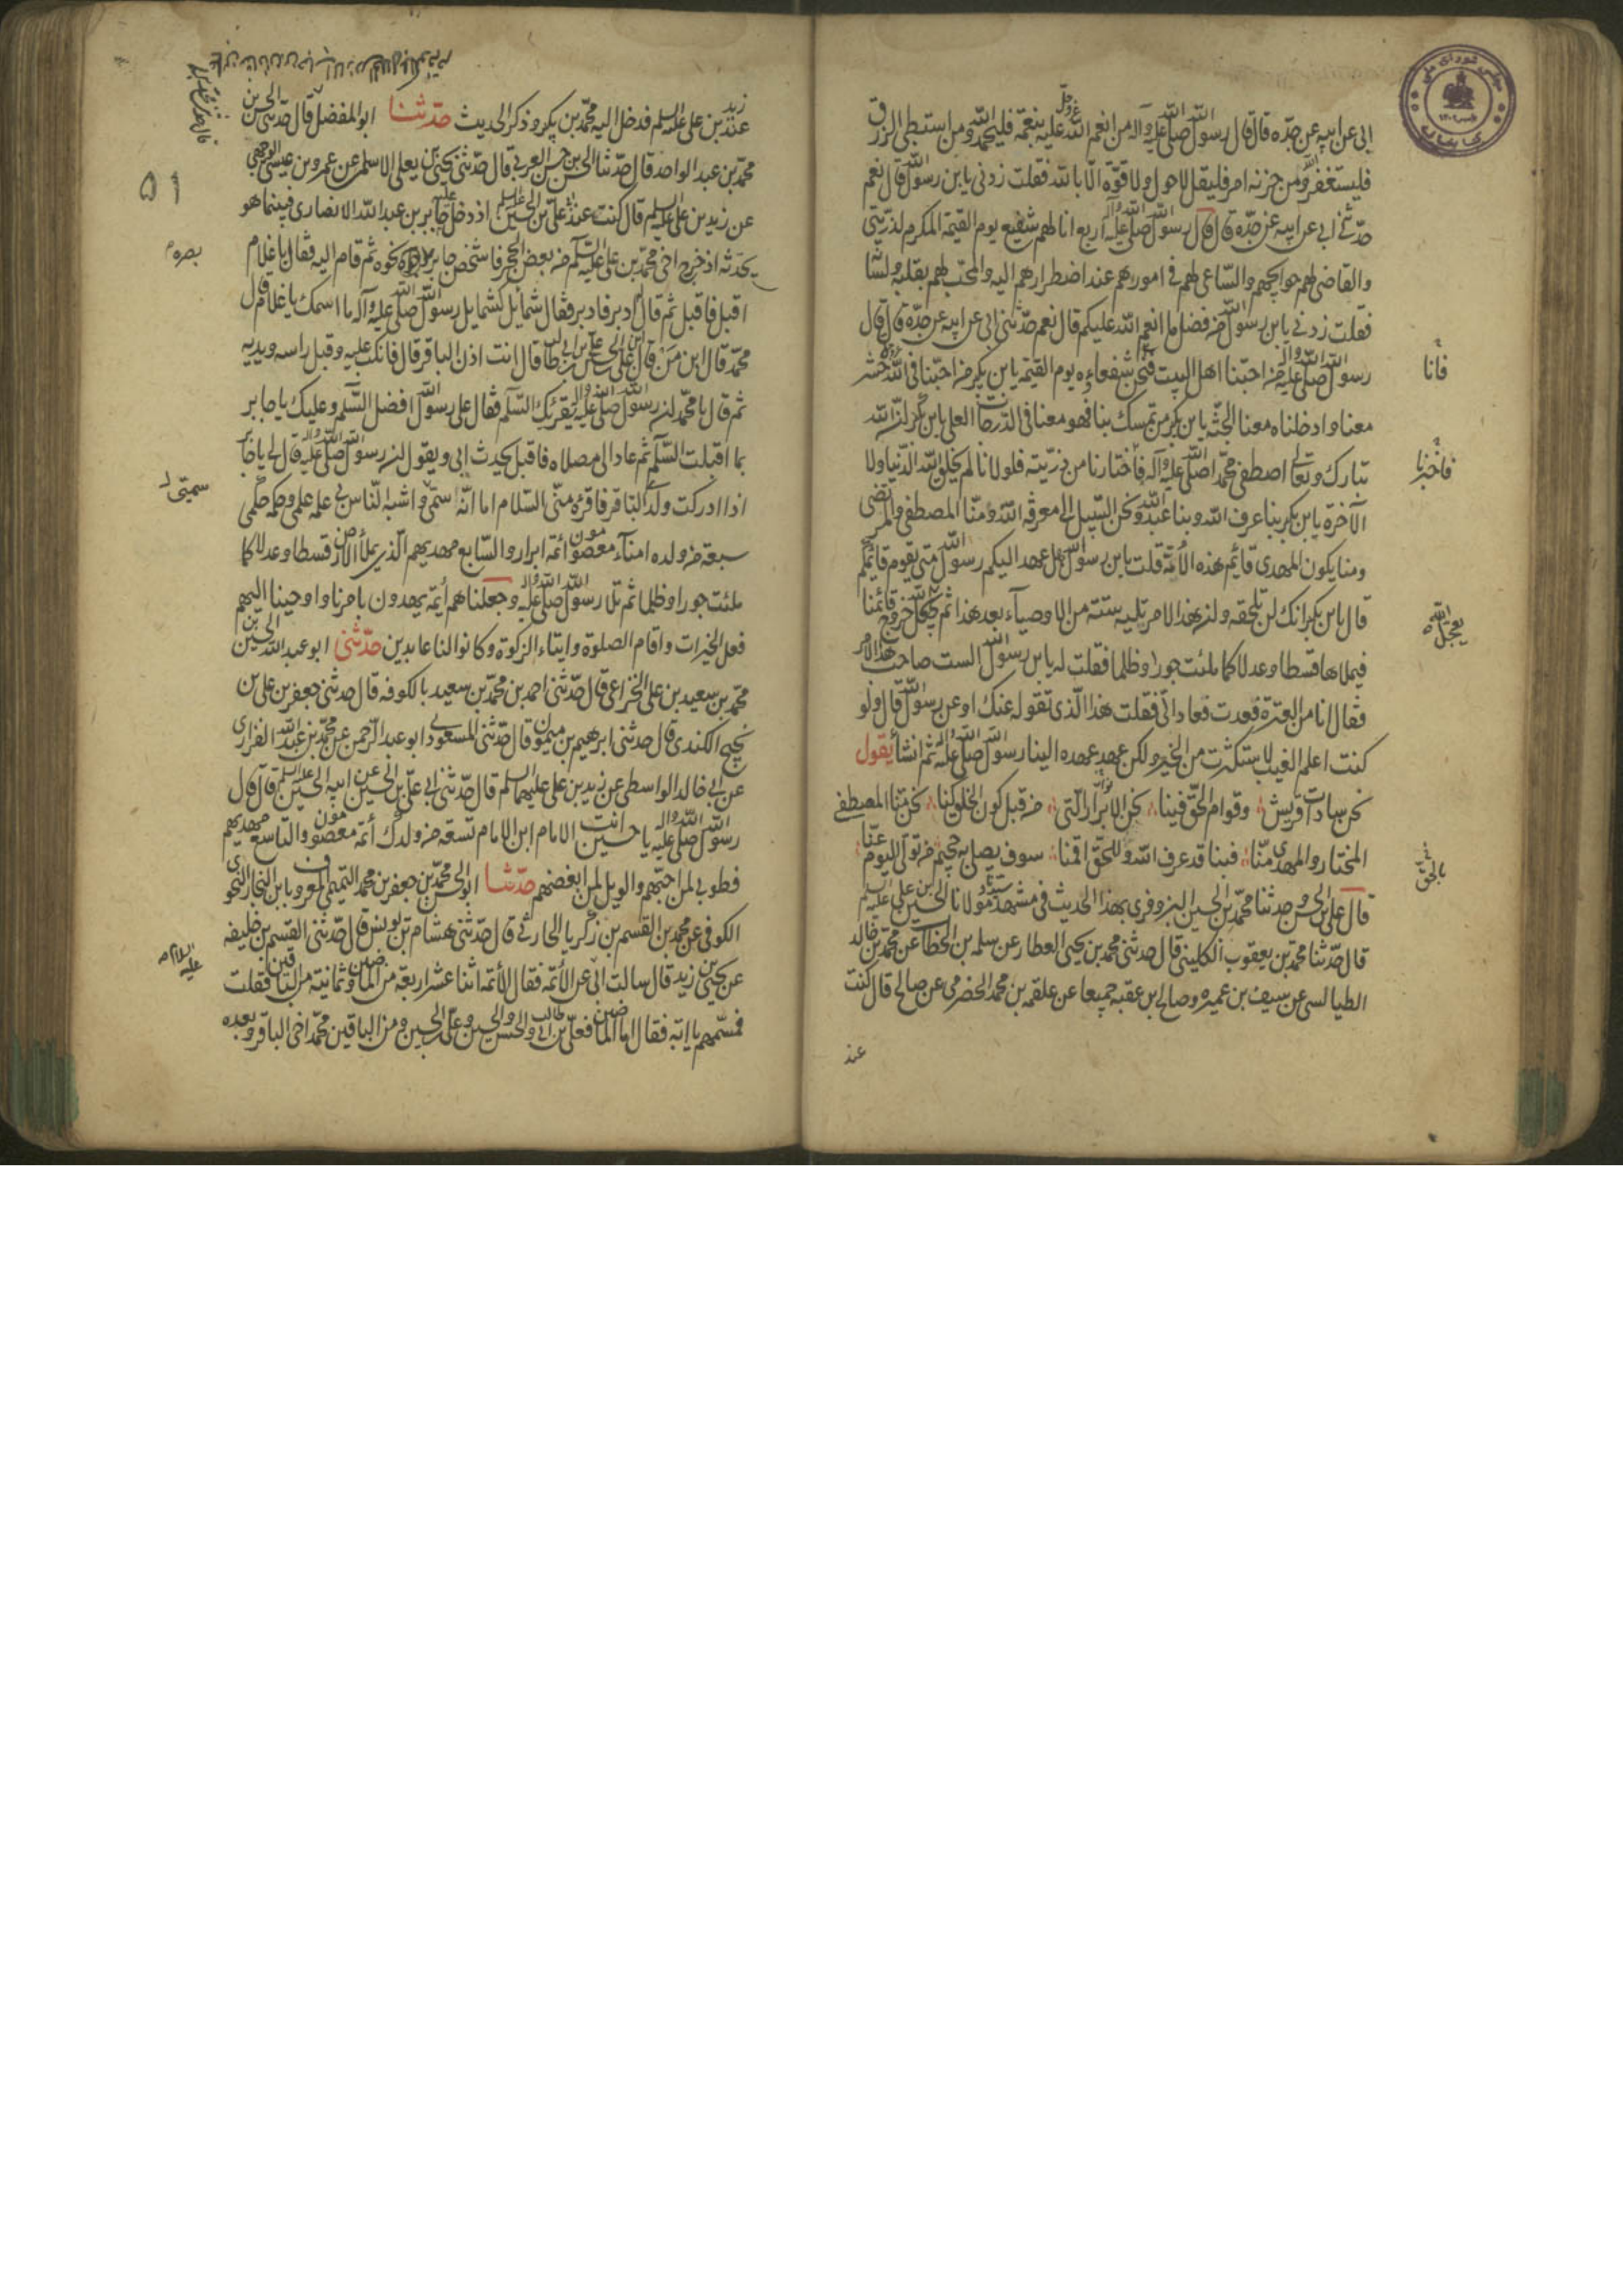 ابى عن ابيه عن جده قال قال رسول الله صلى الله عليه وآله من انعم الله عز وجل عليه بنعمة فليحمد الله ومن استبطى الرزق
فليستغفر الله ومن حزنه امر فليقل لا حول ولا قوة الا بالله فقلت زدنى يابن رسول الله قال نعم
حدثنى ابى عن ابيه عن جده قال قال رسول الله صلى الله عليه وآله اربع انا لهم شفيع يوم القيمة المكرم لذريتى
والقاضى لهم حوايجهم والساعى لهم فى امورهم عند اضطرارهم اليه والمحب لهم بقلبه ولسا
فقلت زدنى يابن رسول الله من فضل ما انعم الله عليكم قال نعم حدثنى ابى عن ابيه عن جده قال قال
رسول الله صلى الله عليه وآله من احبنا اهل البيت فنحن شفعاءه يوم القيمة يابن بكر من احبنا فى الله حشر
معنا وادخلناه معنا الجنة يابن بكر من تمسك بنا فهو معنا فى الدرجات العلى يابن بكر ان الله
تبارك وتعالى اصطفى محمدا صلى الله عليه وآله فاختارنا من ذريته فلولانا لم يخلق الله الدنيا ولا
الآخرة يابن بكر بنا عرف الله وبنا عبد الله ونحن السبيل الى معرفة الله ومنا المصطفى والمرتضى
ومنا يكون المهدى قايم هذه الامة قلت يابن رسول الله هل عهد اليكم رسول الله متى يقوم قايمكم
قال يابن بكر انك لن تلحقه وان هذا الامر تليه ستة من الاوصيآء بعد هذا ثم يجعل الله خروج قائمنا
فيملاها قسطا وعدلا كما ملئت جورا وظلما فقلت له يابن رسول الله الست صاحب هذا الامر
فقال انا من العترة فعدت فعاد الى فقلت هذا الذى تقوله عنك او عن رسول الله قال ولو
كنت اعلم الغيب لاستكثرت من الخير ولكن عهد عهده الينا رسول الله صلى الله عليه وآله ثم انشأ يقول
نحن سادات قريش وقوام الحق فينا نحن الانوار التى من قبل كون الخلق كنا نحن منا المصطفى
المختار والمهدى منا فبنا قد عرف الله وللحق اقمنا سوف يصلى به جحيم من تولى اليوم عنا
قال على بن الحسن وحدثنا محمد بن الحسين البزوفرى بهذا الحديث فى مشهد مولانا الحسين بن على عليه السلم
قال حدثنا محمد بن يعقوب الكلينى قال حدثنى محمد بن يحيى العطار عن سلمه بن الخطاب عن محمد بن خالد
الطيالسى عن سيف بن عميره وصالح ابن عقبه جميعا عن علقمه بن محمد الحضرمى عن صالح قال كنت
عند
فانا
فاخبرنا
يعجل الله
بالحق
عند زيد بن على عليه السلم فدخل اليه محمد بن بكر وذكر الحديث حدثنا ابو المفضل قال حدثنى الحسن بن
محمد بن عبد الواحد قال حدثنا الحسن بن حسن العربى قال حدثنى يحيى بن يعلى الاسلمى عن عمرو بن عيسى الوجهى
عن زيد بن على عليه السلم قال كنت عند ابى على بن الحسين عليه السلم اذ دخل عليه جابر بن عبد الله الانصارى فبينما هو
يحدثه اذ خرج اخى محمد بن على عليه السلم من بعض الحجر فاشخص جابر نحوه ثم قام اليه فقال يا غلام
اقبل فاقبل ثم قال ادبر فادبر فقال شمايل كشمايل رسول الله صلى الله عليه وآله ما اسمك يا غلام قال
محمد قال ابن من قال ابن على بن الحسين بن على بن ابى طالب قال انت اذن الباقر قال فانكب عليه وقبل راسه ويديه
ثم قال يا محمد ان رسول الله صلى الله عليه وآله يقرئك السلم فقال على رسول الله افضل السلم وعليك يا جابر
بما اقبلت السلم ثم عاد الى مصلاه فاقبل يحدث ابى ويقول ان رسول الله صلى الله عليه وآله قال لى يا جابر
اذا ادركت ولدى الباقر فاقرئه منى السلام اما انه سمى واشبه الناس بى علمه علمى وحكمه حكمى
سبعة من ولده امنآء معصومون ائمة ابرار والسابع مهديهم الذى يملأ الارض قسطا وعدلا كما
ملئت جورا وظلما ثم تلا رسول الله صلى الله عليه وآله وجعلناهم أئمة يهدون بامرنا واوحينا اليهم
فعل الخيرات واقام الصلوة وايتاء الزكوة وكانوا لنا عابدين حدثنى ابو عبد الله الحسين بن
محمد بن سعيد بن على الخزاعى قال حدثنى احمد بن محمد بن سعيد بالكوفه قال حدثنى جعفر بن على بن
نجيح الكندى قال حدثنى ابرهيم بن محمد بن ميمون قال حدثنى المسعودى ابو عبد الرحمن عن محمد بن عبد الله الفزارى
عن ابى خالد الواسطى عن زيد بن على عليهما السلم قال حدثنى ابى على بن الحسين عن ابيه الحسين عليه السلم قال قال
رسول الله صلى الله عليه وآله يا حسين انت الامام ابن الامام تسعة من ولدك أئمة معصومون والتاسع مهديهم
فطوبى لمن احبهم والويل لمن ابغضهم حدثنا ابو الحسن محمد بن جعفر بن محمد التميمى المعروف بابن النجار النحوى
الكوفى عن محمد بن القسم بن زكريا المحاربى قال حدثنى هشام بن يونس قال حدثنى القسم بن خليفه
عن يحيى بن زيد قال سالت ابى عن الأئمة فقال الأئمة اثنا عشر اربعة من الماضين وثمانية من الباقين فقلت
فسمهم يا ابه فقال اما الماضين فعلى بن ابى طالب والحسن والحسين وعلى بن الحسين ومن الباقين محمد اخى الباقر وبعده
۵۱
بصره
سميى
عليه السلام